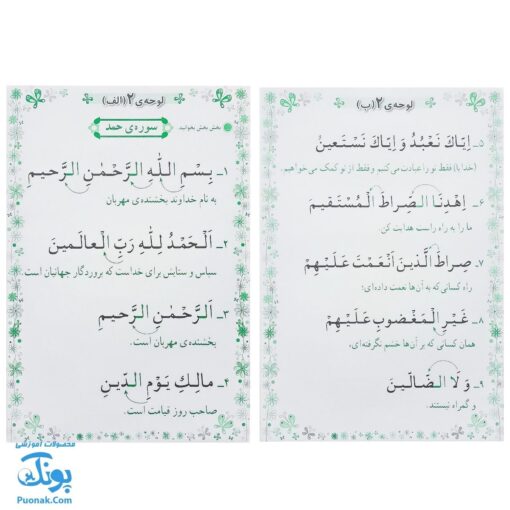 لوحه‌ی ۲ (الف)
سوره‌ی حمد
بخش بخش بخوانید.
۱ـ بِسْمِ اللّٰهِ الرَّحْمٰنِ الرَّحیمِ
به نام خداوند بخشنده‌ی مهربان
۲ـ اَلْحَمْدُ لِلّٰهِ رَبِّ الْعالَمینَ
سپاس و ستایش برای خداست که پروردگار جهانیان است.
۳ـ اَلرَّحْمٰنِ الرَّحیمِ
بخشنده‌ی مهربان است.
۴ـ مالِكِ یَوْمِ الدّینِ
صاحب روز قیامت است.
لوحه‌ی ۲ (ب)
۵ـ اِیّاكَ نَعْبُدُ وَ اِیّاكَ نَسْتَعینُ
(خدایا) فقط تو را عبادت می‌کنیم و فقط از تو کمک می‌خواهیم.
۶ـ اِهْدِنَا الصِّراطَ الْمُسْتَقیمَ
ما را به راه راست هدایت کن
۷ـ صِراطَ الَّذینَ اَنْعَمْتَ عَلَیْهِمْ
راه کسانی که به آن‌ها نعمت داده‌ای؛
۸ـ غَیْرِ الْمَغْضوبِ عَلَیْهِمْ
همان کسانی که بر آن‌ها خشم نگرفته‌ای،
۹ـ وَ لَا الضّالّینَ
و گمراه نیستند.
محصولات آموزشی
پونک
Puonak.Com